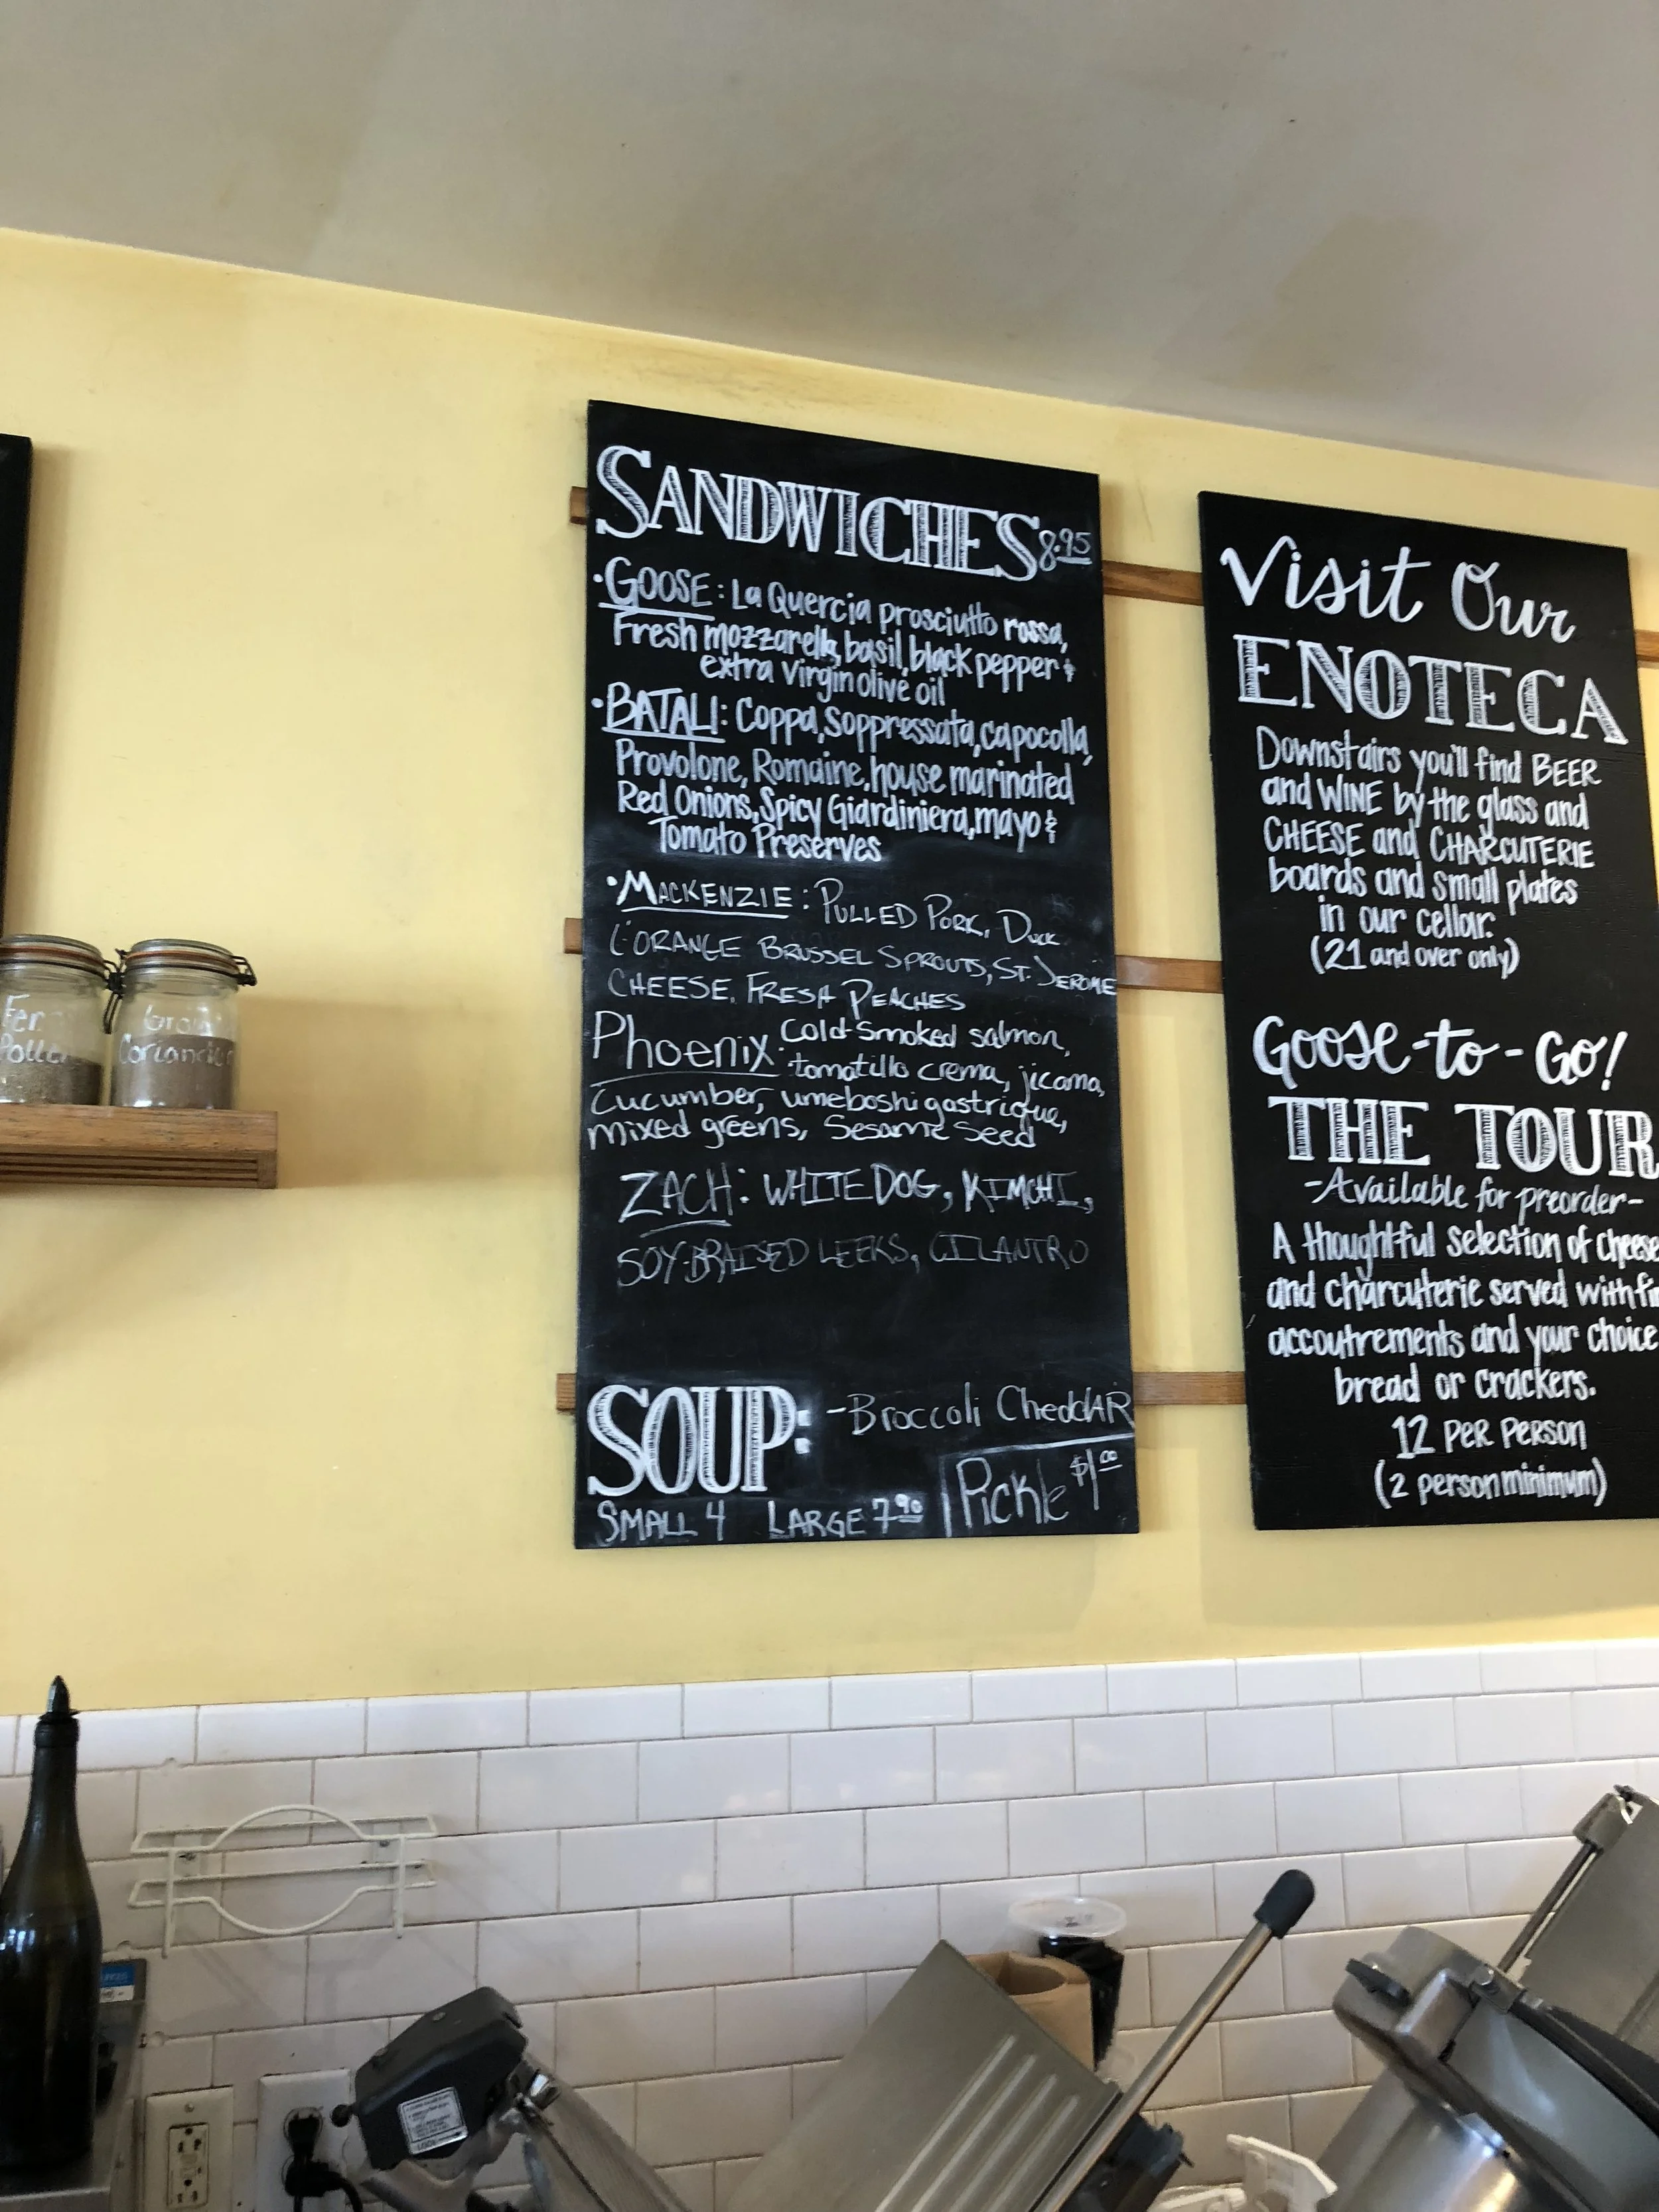 SANDWICHES 8.95
• GOOSE: La Quercia prosciutto rossa,
Fresh mozzarella, basil, black pepper &
extra virgin olive oil
• BATALI: Coppa, Soppressata, capocolla,
Provolone, Romaine, house marinated
Red Onions, Spicy Giardiniera, mayo &
Tomato Preserves
• MACKENZIE: PULLED PORK, DUCK
L'ORANGE BRUSSEL SPROUTS, ST. JEROME
CHEESE, FRESH PEACHES
Phoenix: Cold-Smoked salmon,
tomatillo crema, jicama,
Cucumber, umeboshi gastrique,
mixed greens, Sesame Seed
ZACH: WHITE DOG, KIMCHI,
SOY-BRAISED LEEKS, CILANTRO
SOUP: -Broccoli CheddAR
SMALL 4 LARGE 7.90
Pickle $1.00
Visit Our
ENOTECA
Downstairs you'll find BEER
and WINE by the glass and
CHEESE and CHARCUTERIE
boards and small plates
in our cellar.
(21 and over only)
Goose-to-Go!
THE TOUR
-Available for preorder-
A thoughtful selection of cheese
and charcuterie served with
accoutrements and your choice
bread or crackers.
12 PER PERSON
(2 person minimum)
Coriander